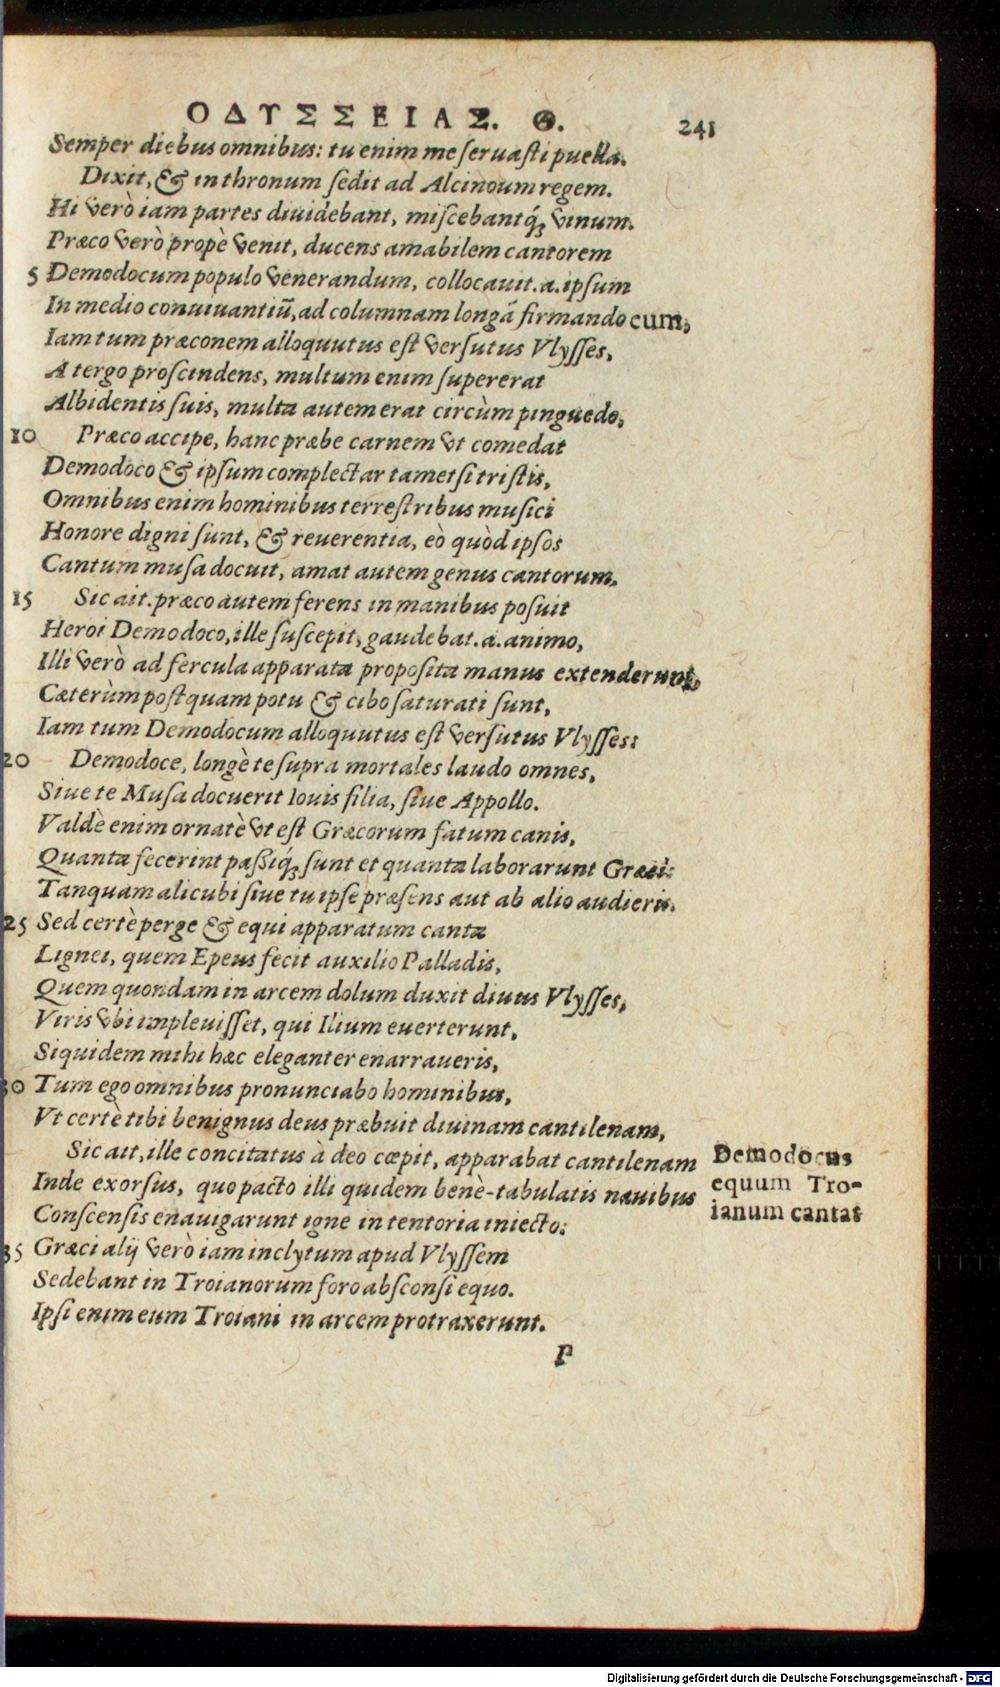 ΟΔΥΣΣΕΙΑΣ. Θ. 241
Semper diebus omnibus: tu enim me seruasti puella.
Dixit, & in thronum sedit ad Alcinoum regem.
Hi verò iam partes diuidebant, miscebantq́; vinum.
Præco verò propè venit, ducens amabilem cantorem
5 Demodocum populo venerandum, collocauit. a. ipsum
In medio conuiuantiũ, ad columnam longã firmando cum,
Iam tum præconem alloquutus est versutus Vlysses,
A tergo proscindens, multum enim supererat
Albidentis suis, multa autem erat circùm pinguedo,
10 Præco accipe, hanc præbe carnem vt comedat
Demodoco & ipsum complectar tametsi tristis,
Omnibus enim hominibus terrestribus musici
Honore digni sunt, & reuerentia, eò quòd ipsos
Cantum musa docuit, amat autem genus cantorum.
15 Sic ait. præco autem ferens in manibus posuit
Heroi Demodoco, ille suscepit, gaudebat. a. animo,
Illi verò ad fercula apparata proposita manus extenderunt,
Cæterùm postquam potu & cibo saturati sunt,
Iam tum Demodocum alloquutus est versutus Vlysses:
20 Demodoce, longè te supra mortales laudo omnes,
Siue te Musa docuerit Iouis filia, siue Appollo.
Valdè enim ornatè vt est Græcorum fatum canis,
Quanta fecerint paßiq́; sunt et quanta laborarunt Græci:
Tanquam alicubi siue tu ipse præsens aut ab alio audieris.
25 Sed certè perge & equi apparatum canta
Lignei, quem Epeus fecit auxilio Palladis,
Quem quondam in arcem dolum duxit diuus Vlysses,
Viris vbi impleuisset, qui Ilium euerterunt,
Siquidem mihi hæc eleganter enarraueris,
30 Tum ego omnibus pronunciabo hominibus,
Vt certè tibi benignus deus præbuit diuinam cantilenam,
Sic ait, ille concitatus à deo cœpit, apparabat cantilenam
Inde exorsus, quo pacto illi quidem benè-tabulatis nauibus
Conscensis enauigarunt igne in tentoria iniecto:
35 Græci alij verò iam inclytum apud Vlyssem
Sedebant in Troianorum foro absconsi equo.
Ipsi enim eum Troiani in arcem protraxerunt.
P
Demodocus
equum Tro-
ianum cantat
Digitalisierung gefördert durch die Deutsche Forschungsgemeinschaft - DFG